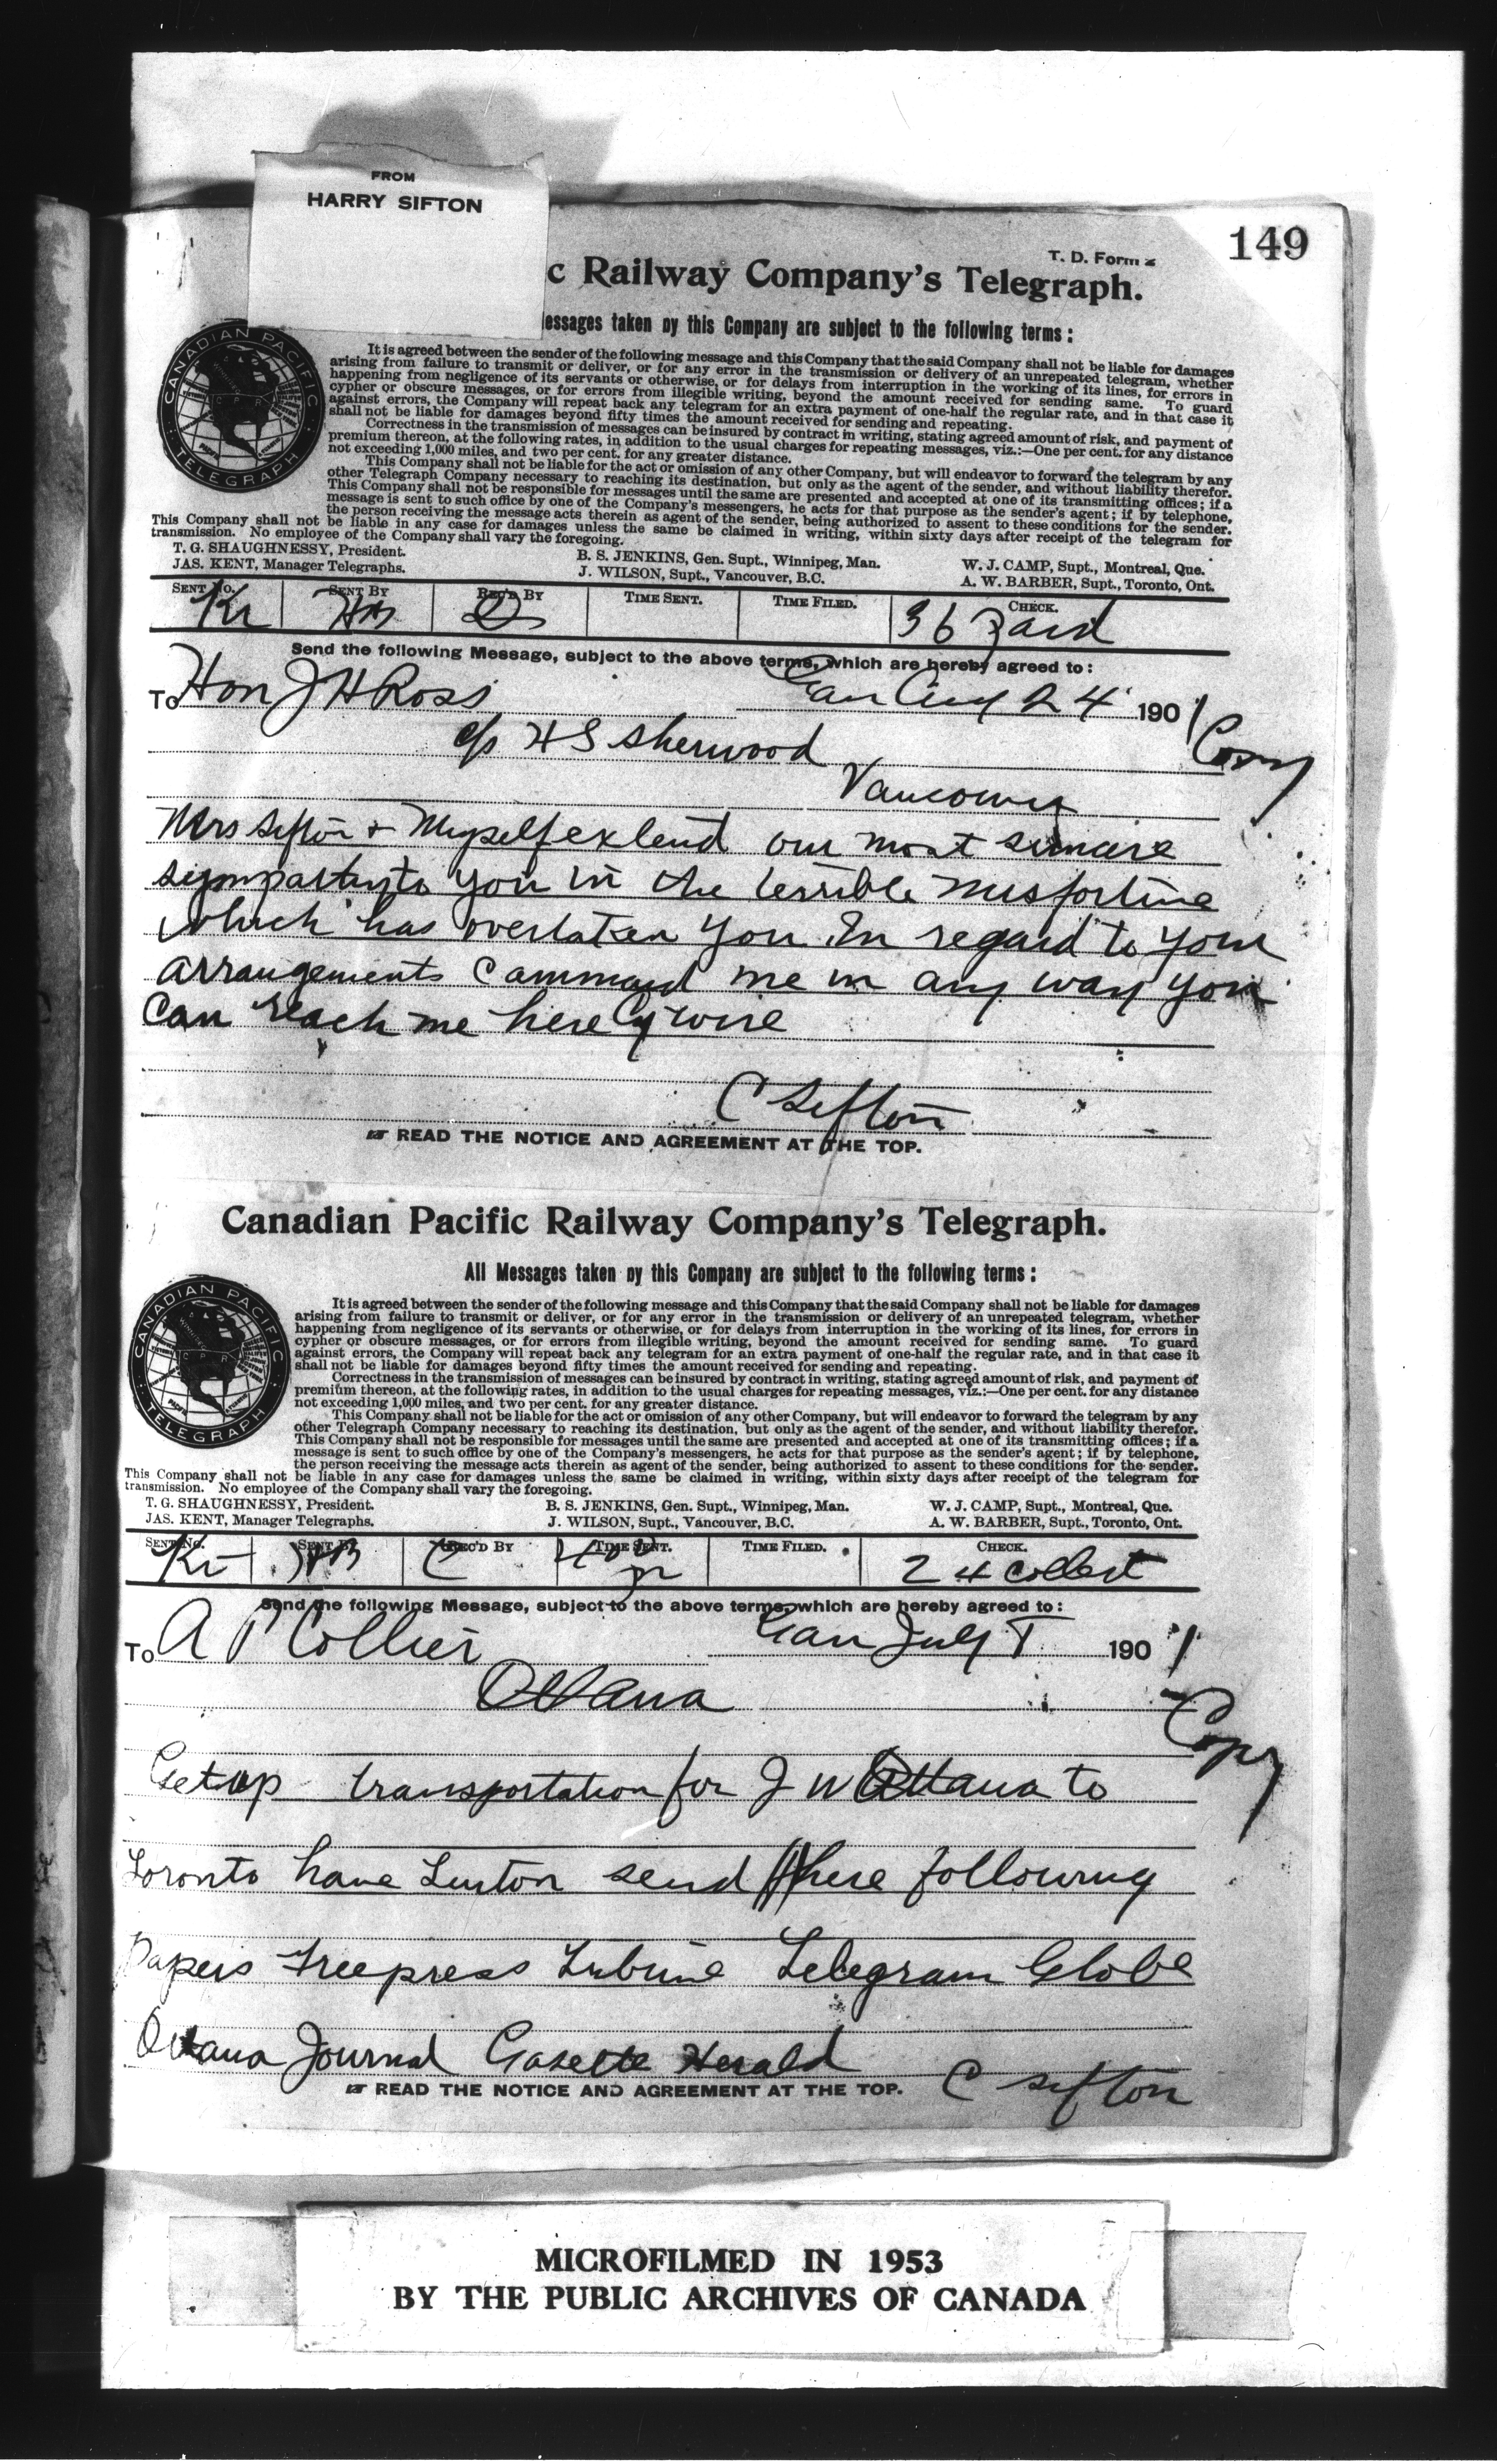 FROM
HARRY SIFTON
149
T. D. Form 2
c Railway Company's Telegraph.
essages taken by this Company are subject to the following terms :
It is agreed between the sender of the following message and this Company that the said Company shall not be liable for damages
arising from failure to transmit or deliver, or for any error in the transmission or delivery of an unrepeated telegram, whether
happening from negligence of its servants or otherwise, or for delays from interruption in the working of its lines, for errors in
cypher or obscure messages, or for errors from illegible writing, beyond the amount received for sending same. To guard
against errors, the Company will repeat back any telegram for an extra payment of one-half the regular rate, and in that case it
shall not be liable for damages beyond fifty times the amount received for sending and repeating.
Correctness in the transmission of messages can be insured by contract in writing, stating agreed amount of risk, and payment of
premium thereon, at the following rates, in addition to the usual charges for repeating messages, viz.:—One per cent. for any distance
not exceeding 1,000 miles, and two per cent. for any greater distance.
This Company shall not be liable for the act or omission of any other Company, but will endeavor to forward the telegram by any
other Telegraph Company necessary to reaching its destination, but only as the agent of the sender, and without liability therefor.
This Company shall not be responsible for messages until the same are presented and accepted at one of its transmitting offices; if a
message is sent to such office by one of the Company's messengers, he acts for that purpose as the sender's agent; if by telephone,
the person receiving the message acts therein as agent of the sender, being authorized to assent to these conditions for the sender.
This Company shall not be liable in any case for damages unless the same be claimed in writing, within sixty days after receipt of the telegram for
transmission. No employee of the Company shall vary the foregoing.
CANADIAN PACIFIC TELEGRAPH
T. G. SHAUGHNESSY, President. B. S. JENKINS, Gen. Supt., Winnipeg, Man. W. J. CAMP, Supt., Montreal, Que.
JAS. KENT, Manager Telegraphs. J. WILSON, Supt., Vancouver, B.C. A. W. BARBER, Supt., Toronto, Ont.
SENT No. SENT BY REC'D BY TIME SENT. TIME FILED. CHECK.
36 paid
Send the following Message, subject to the above terms, which are hereby agreed to :
To Hon J H Ross Gan Aug 24 1901
c/o H S Sherwood Copy
Vancouver
Mrs Sifton + Myself extend our most sincere
sympathy to you in the terrible misfortune
which has overtaken you. In regard to your
arrangements command me in any way you
can reach me here by wire
C Sifton
READ THE NOTICE AND AGREEMENT AT THE TOP.
Canadian Pacific Railway Company's Telegraph.
All Messages taken by this Company are subject to the following terms :
It is agreed between the sender of the following message and this Company that the said Company shall not be liable for damages
arising from failure to transmit or deliver, or for any error in the transmission or delivery of an unrepeated telegram, whether
happening from negligence of its servants or otherwise, or for delays from interruption in the working of its lines, for errors in
cypher or obscure messages, or for errors from illegible writing, beyond the amount received for sending same. To guard
against errors, the Company will repeat back any telegram for an extra payment of one-half the regular rate, and in that case it
shall not be liable for damages beyond fifty times the amount received for sending and repeating.
Correctness in the transmission of messages can be insured by contract in writing, stating agreed amount of risk, and payment of
premium thereon, at the following rates, in addition to the usual charges for repeating messages, viz.:—One per cent. for any distance
not exceeding 1,000 miles, and two per cent. for any greater distance.
This Company shall not be liable for the act or omission of any other Company, but will endeavor to forward the telegram by any
other Telegraph Company necessary to reaching its destination, but only as the agent of the sender, and without liability therefor.
This Company shall not be responsible for messages until the same are presented and accepted at one of its transmitting offices; if a
message is sent to such office by one of the Company's messengers, he acts for that purpose as the sender's agent; if by telephone,
the person receiving the message acts therein as agent of the sender, being authorized to assent to these conditions for the sender.
This Company shall not be liable in any case for damages unless the same be claimed in writing, within sixty days after receipt of the telegram for
transmission. No employee of the Company shall vary the foregoing.
CANADIAN PACIFIC TELEGRAPH
T. G. SHAUGHNESSY, President. B. S. JENKINS, Gen. Supt., Winnipeg, Man. W. J. CAMP, Supt., Montreal, Que.
JAS. KENT, Manager Telegraphs. J. WILSON, Supt., Vancouver, B.C. A. W. BARBER, Supt., Toronto, Ont.
SENT No. SENT BY REC'D BY TIME SENT. TIME FILED. CHECK.
24 collect
Send the following Message, subject to the above terms, which are hereby agreed to :
To A P Collier Gan July 1901
Ottawa
Copy
Get up transportation for J W Ottawa to
Toronto have Linton send here following
Papers Freepress Tribune Telegram Globe
Ottawa Journal Gazette Herald
C Sifton
READ THE NOTICE AND AGREEMENT AT THE TOP.
MICROFILMED IN 1953
BY THE PUBLIC ARCHIVES OF CANADA